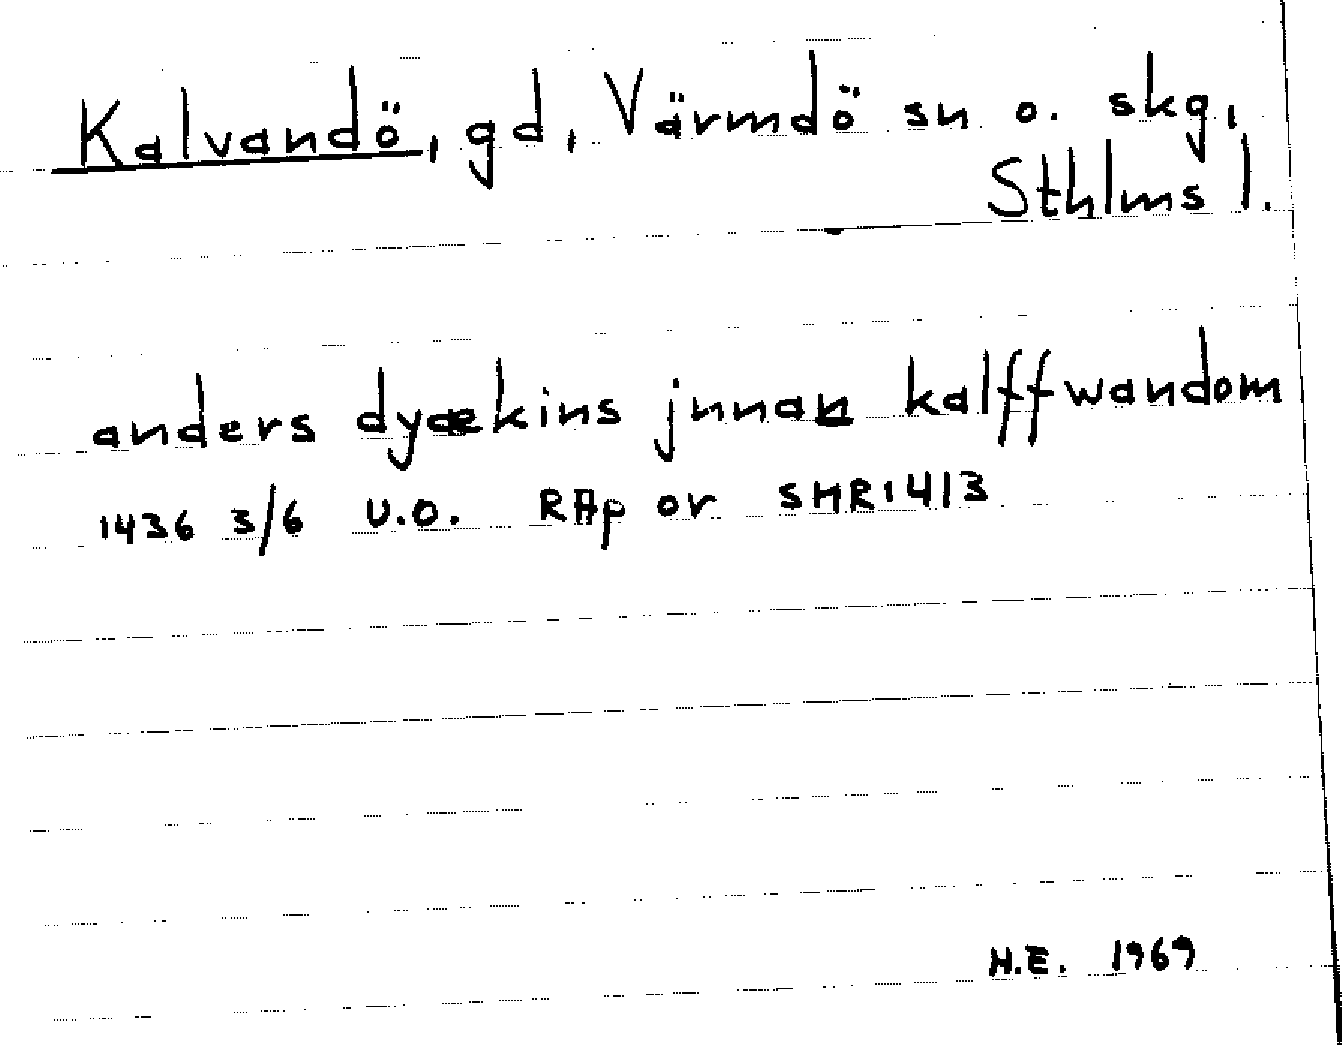 Kalvandö, gd, Värmdö sn o. skg,
Sthlms l.
anders dyækins jnnan kalffwandom
1436 3/6 U.O. RAp or SMR1413
H.E. 1969